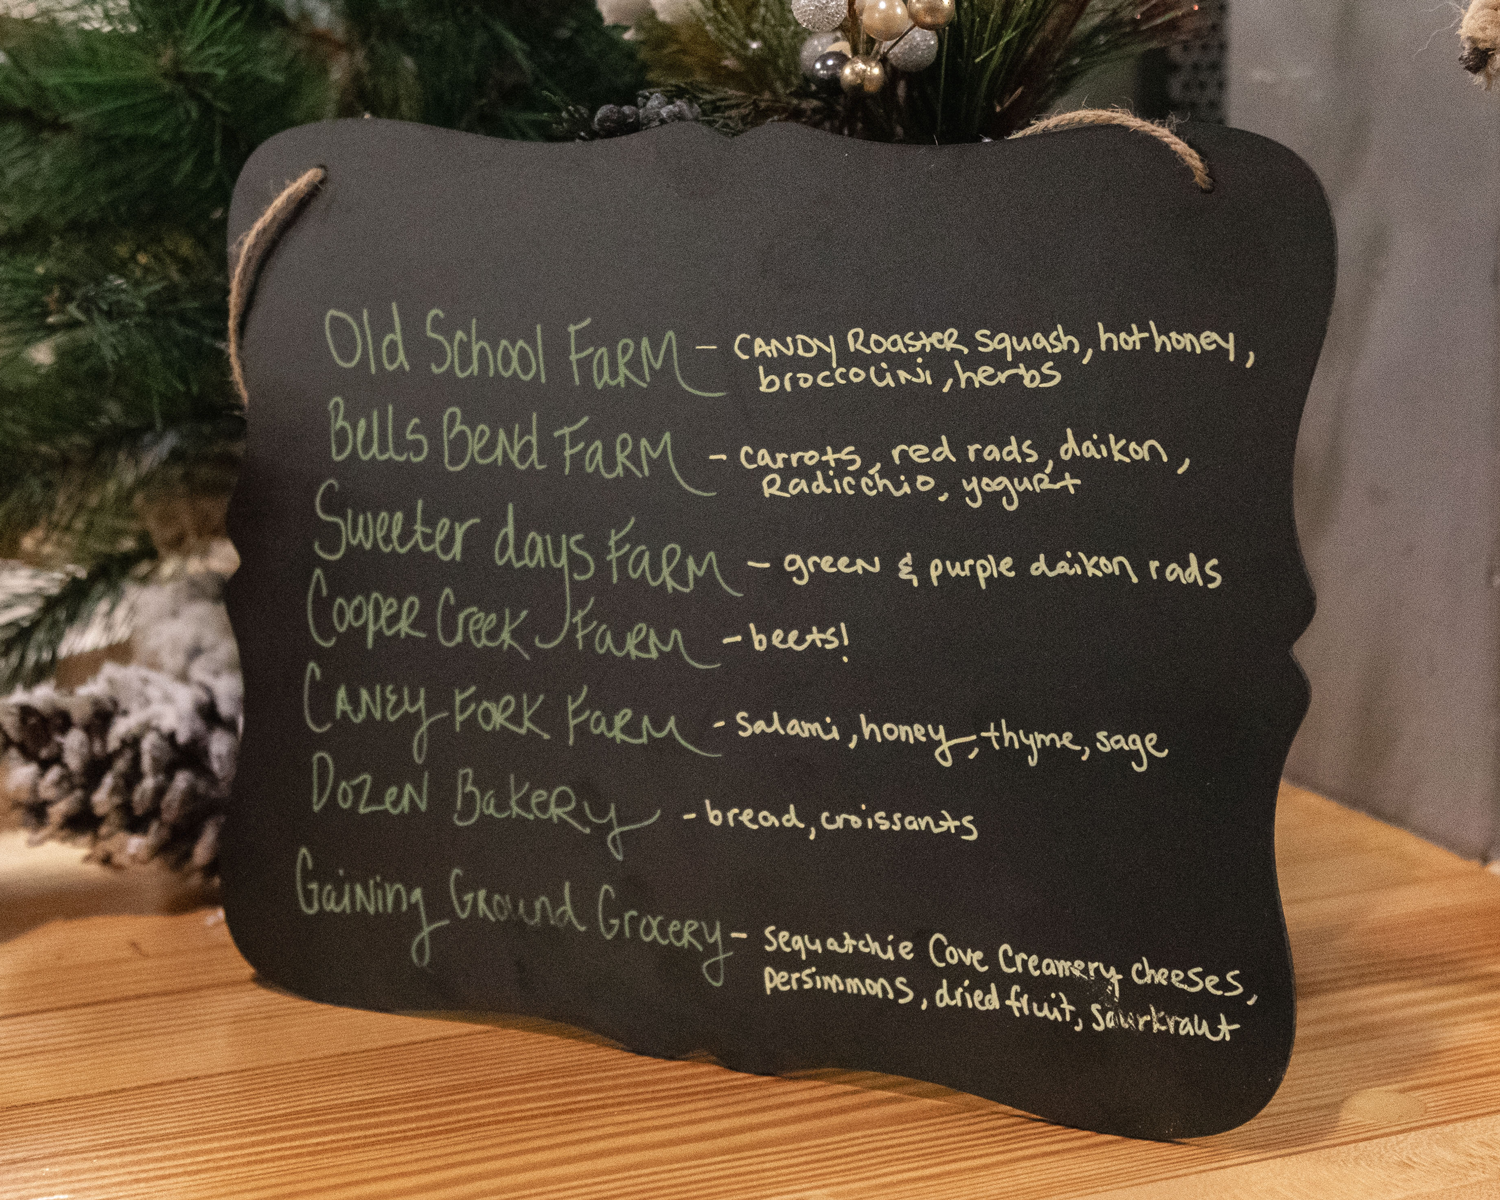 Old School Farm - Candy Roaster squash, hot honey,
broccolini, herbs
Bells Bend Farm - carrots, red rads, daikon,
Radicchio, yogurt
Sweeter days Farm - green & purple daikon rads
Cooper Creek Farm - beets!
Caney Fork Farm - Salami, honey, thyme, sage
Dozen Bakery - bread, croissants
Gaining Ground Grocery - Sequatchie Cove Creamery cheeses,
persimmons, dried fruit, saurkraut